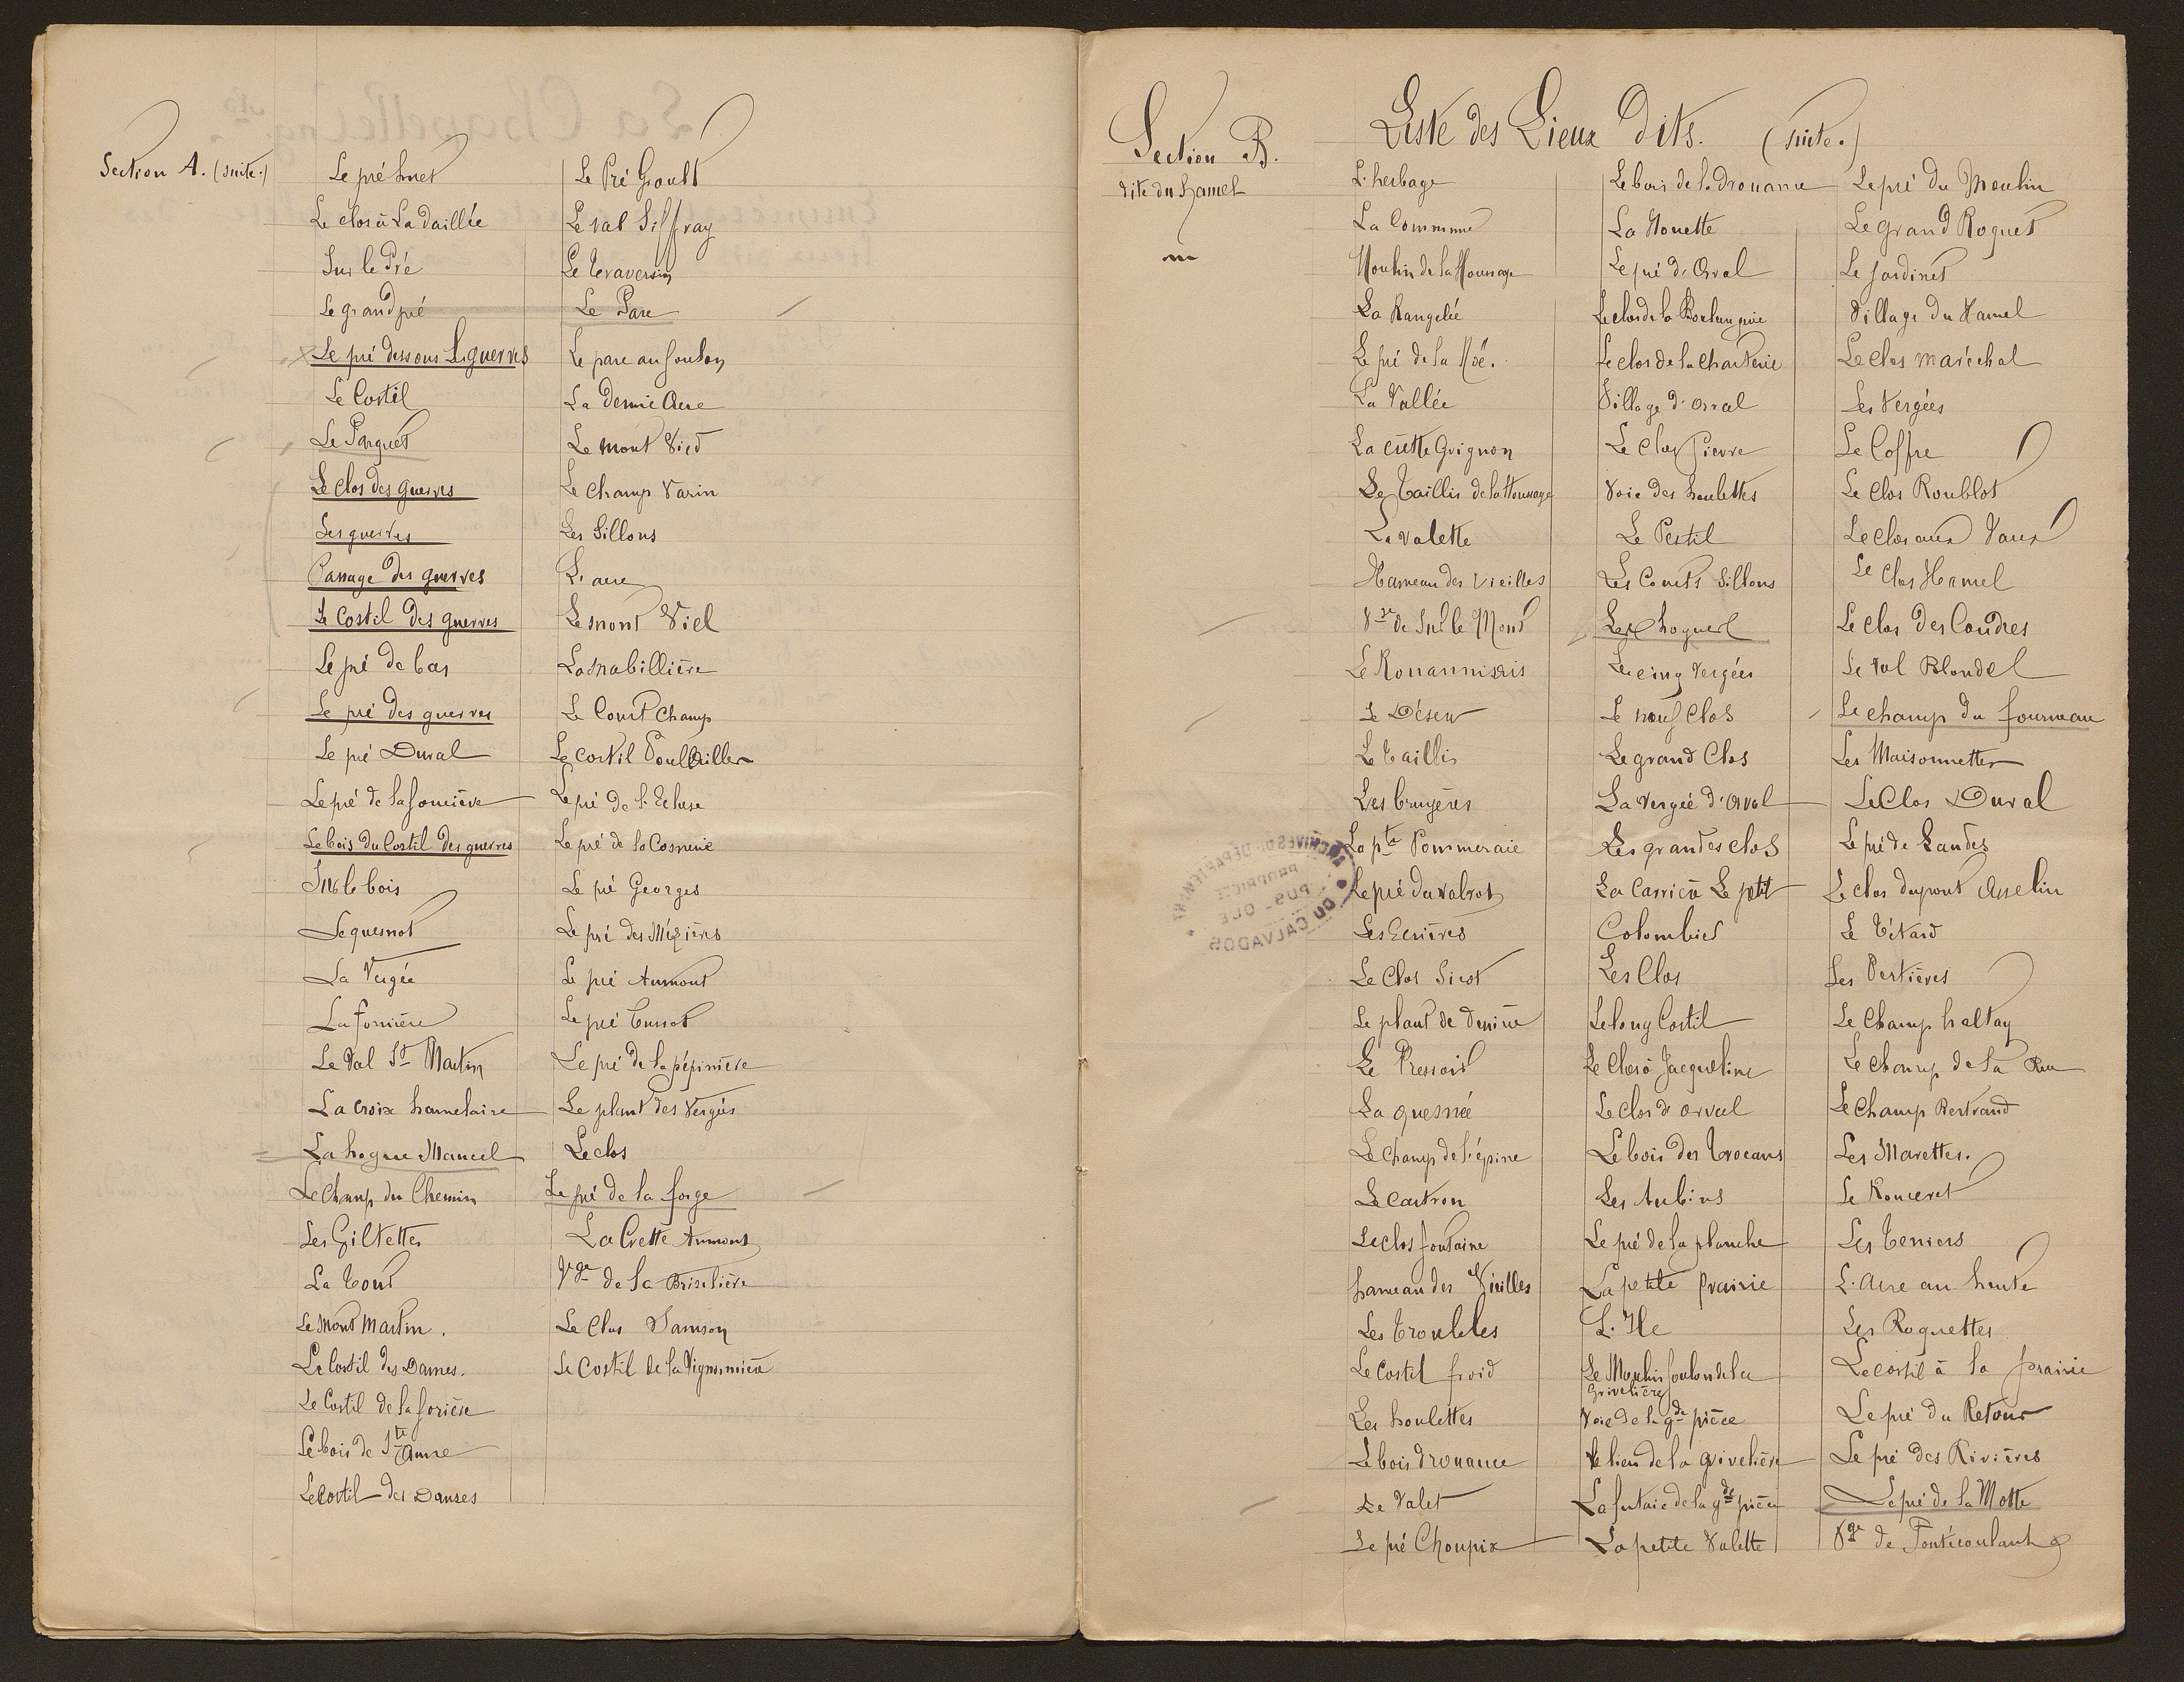 Section A. (suite.)
Le pré huet
Le clos à La Daillée
Sur le Pré
Le grand pré
Le pré dessous les guerres
Le Costil
Le Parquet
Le Clos des guerres
Les guerres
Passage des guerres
Le Costil des guerres
Le pré de bas
Le pré des guerres
Le pré Duval
Le pré de la foncière
Le bois du Costil des guerres
Sur le bois
Le quesnot
La Vergée
La fonnière
Le Val St Martin
La croix hamelaire
La hogue Mancel
Le Champ du Chemin
Les Gilettes
La Cour
Le Mont Martin.
Le Costil des Dames.
Le Costil de la sorière
Le bois de Ste Anne
Le Costil des Danses
Le Pré Groult
Le val Siffray
Le Traversin
Le Parc
Le parc au foulon
La demie Acre
Le mont Vied
Le Champ Varin
Les Sillons
L'acre
Le mont Viel
La Mabillière
Le Court Champ
Le costil Poullailler
Le pré de l'Ecluse
Le pré de la Cosnerie
Le pré Georges
Le pré des Mézières
Le pré Aumont
Le pré Tussot
Le pré de la pépinière
Le plant des Vergées
Le clos
Le pré de la forge
La Crette Aumont
Vge de la Briselière
Le Clos Samson
Le Costil de la Vignonnière
Section B.
dite du hamel
Liste des Lieux dits. (suite.)
L'herbage
La Commune
Moulin de la Houssaye
La Rangelée
Le pré de la Noë.
La Vallée
La cutte Grignon
Le Taillis de la Houssaye
La Valette
Hameau des Vieilles
Vge de Sur le Mont
Le Désert
Le Taillis
Les bruyères
La pte Pommeraie
Le pré du Valrot
Le Clos Sicot
Le plant de derrière
Le Pressoir
La quesnée
Le Champ de l'épine
Le Castron
Le clos fontaine
hameau des Vieilles
Les Troubles
Le Costil froid
Les houlettes
Le bois drouance
Le Valet
Le pré Choupix
Le bois de la Drouance
La Nouette
Le pré d'Orval
Le clos de la Boulangerie
Le clos de la Charterie
Village d'Orval
Le Clos Pierre
Voie des houlettes
Le Pestil
Les Courts Sillons
Le hoguet
Les cinq Vergées
Le neuf Clos
Le grand Clos
La vergée d'Orval
Les grandes clos
La Carrière Le petit
Colombier
Les Clos
Le long Costil
Le Clos à Jacqueline
Le Clos d'orval
Le bois des Trocans
Les Aubins
Le pré de la planche
La petite prairie
L'Ile
Le Moulin foulon de la
Grivelière
Voie de la gde pièce
Le lieu de la grivelière
La futaie de la gde pièce
La petite Valette
Le pré du Moulin
Le grand Roquet
Le Jardinet
Village du Hamel
Le Clos Maréchal
Les Vergées
Le Coffre
Le Clos Roublot
Le Clos aux Vaux
Le Clos Hamel
Le Clos des Coudres
Le Val Blondel
Le champ du fourneau
Les Maisonnettes
Le Clos Duval
Le pré de Landes
Le clos du pont Asselin
Le Tétard
Les Pertières
Le Champ haltay
Le Champ de la Rue
Le Champ Bertrand
Les Marettes.
Le Ronceret
Les Terriers
L'Acre au heurte
Les Roquettes
Le costil à la prairie
Le pré du Retour
Le pré des Rivières
Le pré de la Motte
Vge de Pontécoulant
ARCHIVES DÉPARTEMENT DU CALVADOS
PROPRIÉTÉ
PUBLIQUE